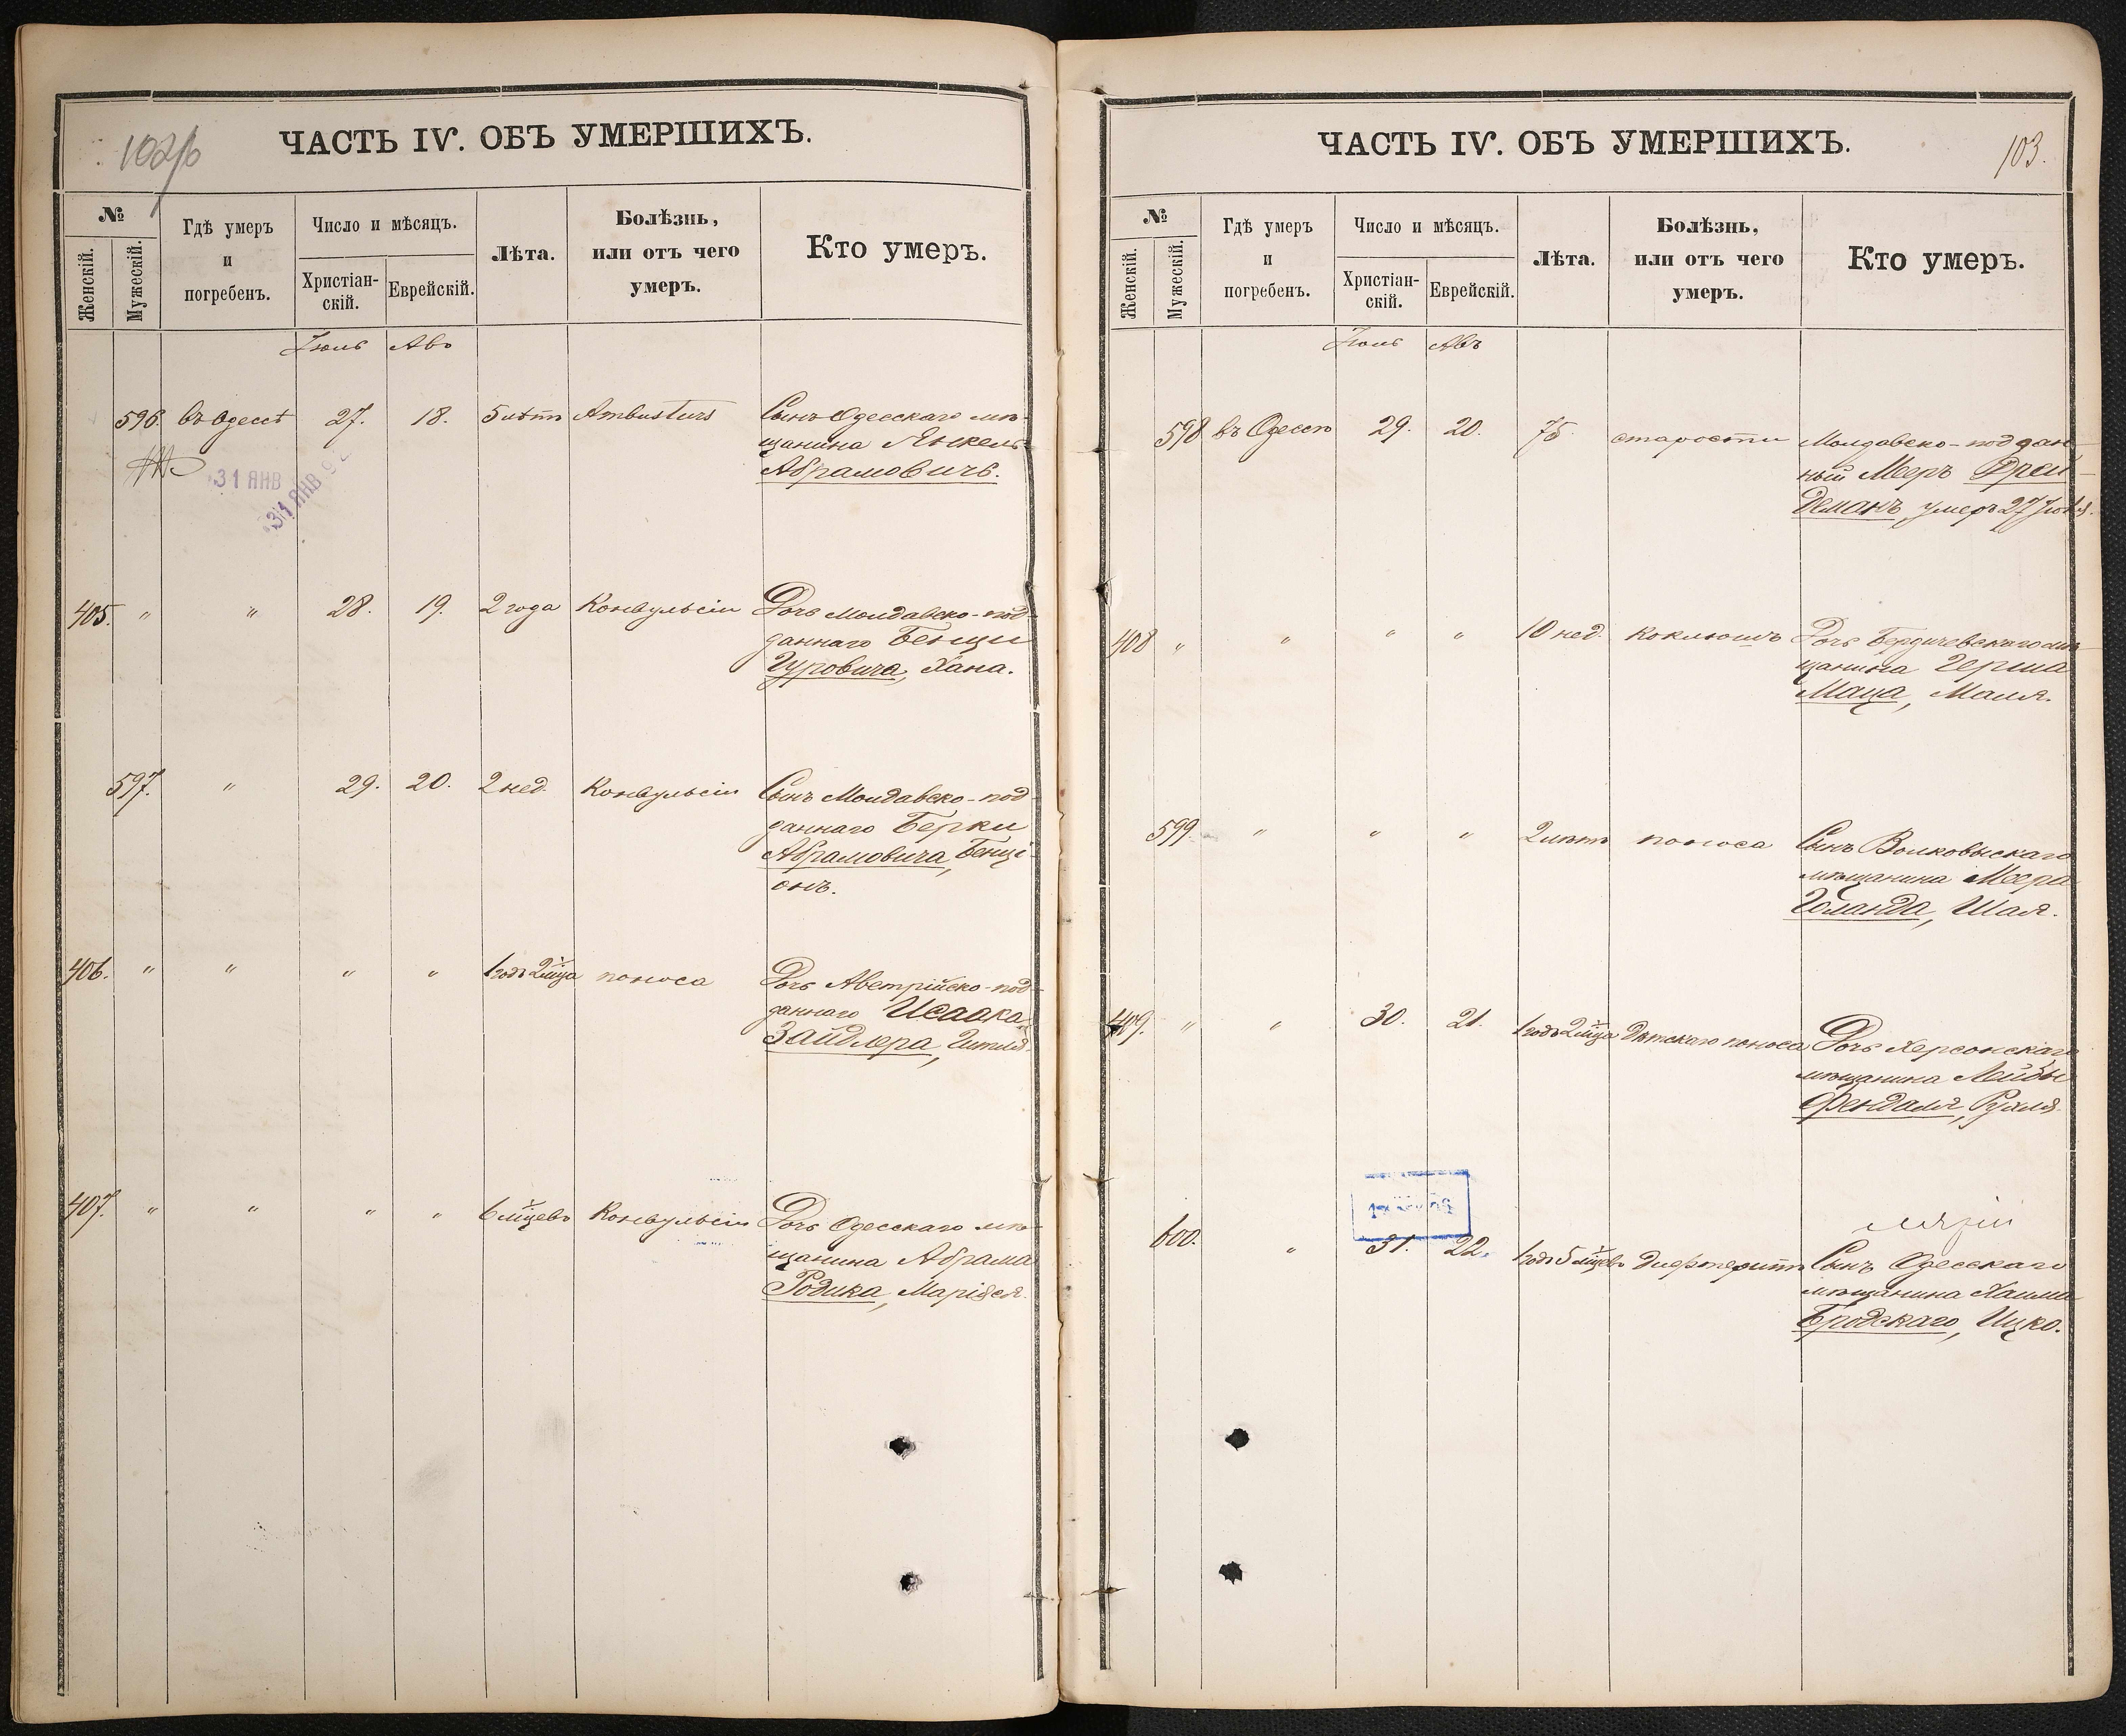 102/б
ЧАСТЬ IV. ОБЪ УМЕРШИХЪ.
№
Женскій.
Мужескій.
Гдѣ умеръ
и
погребенъ.
Число и мѣсяцъ.
Христіан-
скій.
Еврейскій.
Лѣта.
Болѣзнь,
или отъ чего
умеръ.
Кто умеръ.
Іюль Авъ
596. въ Одессѣ 27. 18. 5 лѣтъ Ambusturs Сынъ Одесскаго мѣ-
щанина Янкель
Абрамовичъ.
31 ЯНВ
31 ЯНВ 92
405. " " 28. 19. 2 года Конвульсіи Дочь Молдавско-под-
даннаго Бенци
Гуровича, Хана.
597. " 29. 20. 2 нед. Конвульсіи Сынъ Молдавско-под-
даннаго Берки
Абрамовича, Бенці-
онъ.
406. " " " " 1 годъ 2 м̃ца поноса Дочь Австрійско-под-
даннаго Исаака
Зайдлера, Гитля.
407. " " " " 6 м̃цевъ Конвульсіи Дочь Одесскаго мѣ-
щанина Абрама
Родика, Маріяся.
103.
ЧАСТЬ IV. ОБЪ УМЕРШИХЪ.
№
Женскій.
Мужескій.
Гдѣ умеръ
и
погребенъ.
Число и мѣсяцъ.
Христіан-
скій.
Еврейскій.
Лѣта.
Болѣзнь,
или отъ чего
умеръ.
Кто умеръ.
Іюль Авъ
598 въ Одессѣ 29. 20. 75. старости Молдавско-поддан-
ный Мееръ Фрей-
деманъ, умеръ 27 Іюля.
408 " " " " 10 нед. Коклюшъ Дочь Бердичевскаго мѣ-
щанина Герша
Маца, Маля.
599. " " " 2 лѣтъ поноса Сынъ Волковыскаго
мѣщанина Меера
Голанда, Шая.
409. " " 30. 21. 1 годъ 2 м̃ца Дѣтскаго поноса Дочь Херсонскаго
мѣщанина Лейбы
Френдаля, Рухля.
600. " 31. 22. 1 годъ 5 м̃цевъ Дифтеритъ Сынъ Одесскаго
мѣщанина Хаима
Бродскаго, Ицко.